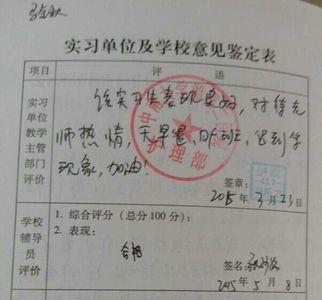 实习单位及学校意见鉴定表
项目 评 语
实习
单位
教学
主管
部门
评价
该实习生表现良好，对待老
师热情，无早退
现象，加油！
护理部
签章：
2015年3月23日
学校
辅导
员
评价
1. 综合评分（总分100分）：
2. 表现：
合格
签名：
2015年5月8日